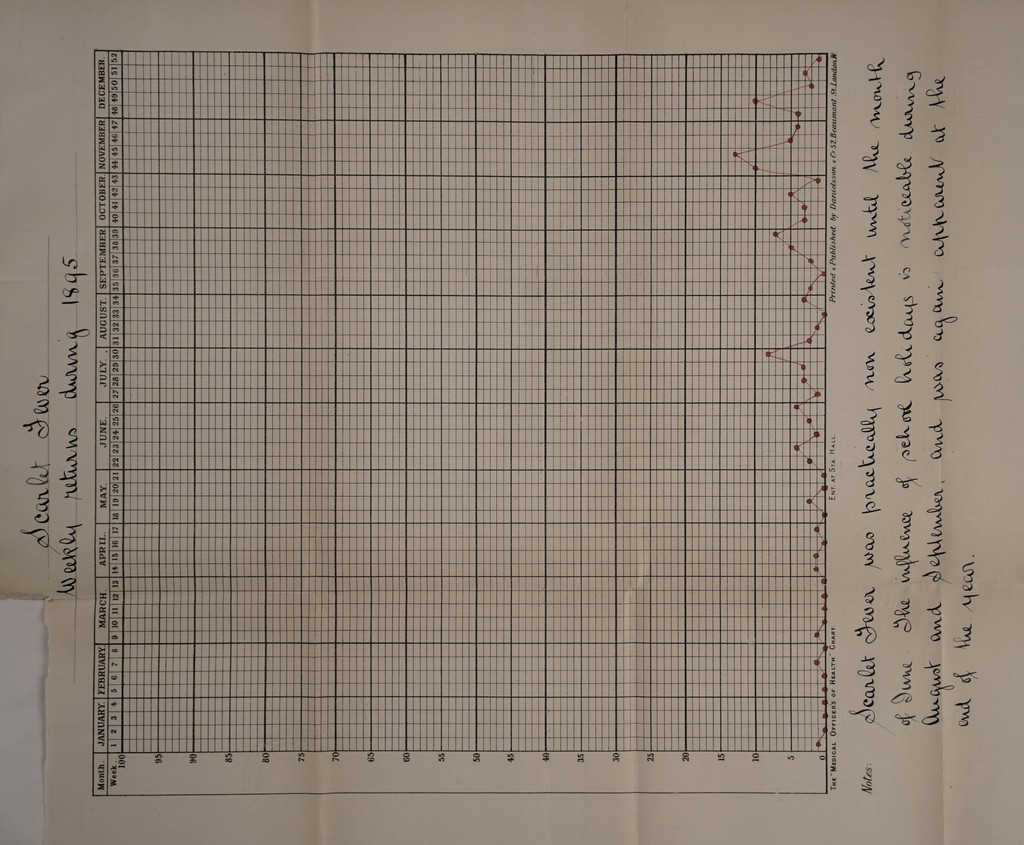 Scarlet Fever
Weekly returns during 1895
Month. JANUARY. FEBRUARY. MARCH. APRIL. MAY. JUNE. JULY. AUGUST. SEPTEMBER OCTOBER. NOVEMBER DECEMBER.
Week. 1 2 3 4 5 6 7 8 9 10 11 12 13 14 15 16 17 18 19 20 21 22 23 24 25 26 27 28 29 30 31 32 33 34 35 36 37 38 39 40 41 42 43 44 45 46 47 48 49 50 51 52
100
95
90
85
80
75
70
65
60
55
50
45
40
35
30
25
20
15
10
5
0
THE "MEDICAL OFFICERS OF HEALTH" CHART. ENT. AT STA. HALL. Printed & Published by Danielsson & Co 52, Beaumont St. London, W
Notes: Scarlet Fever was practically non existent until the month
of June The influence of school holidays is noticeable during
August and September, and was again apparent at the
end of the year.